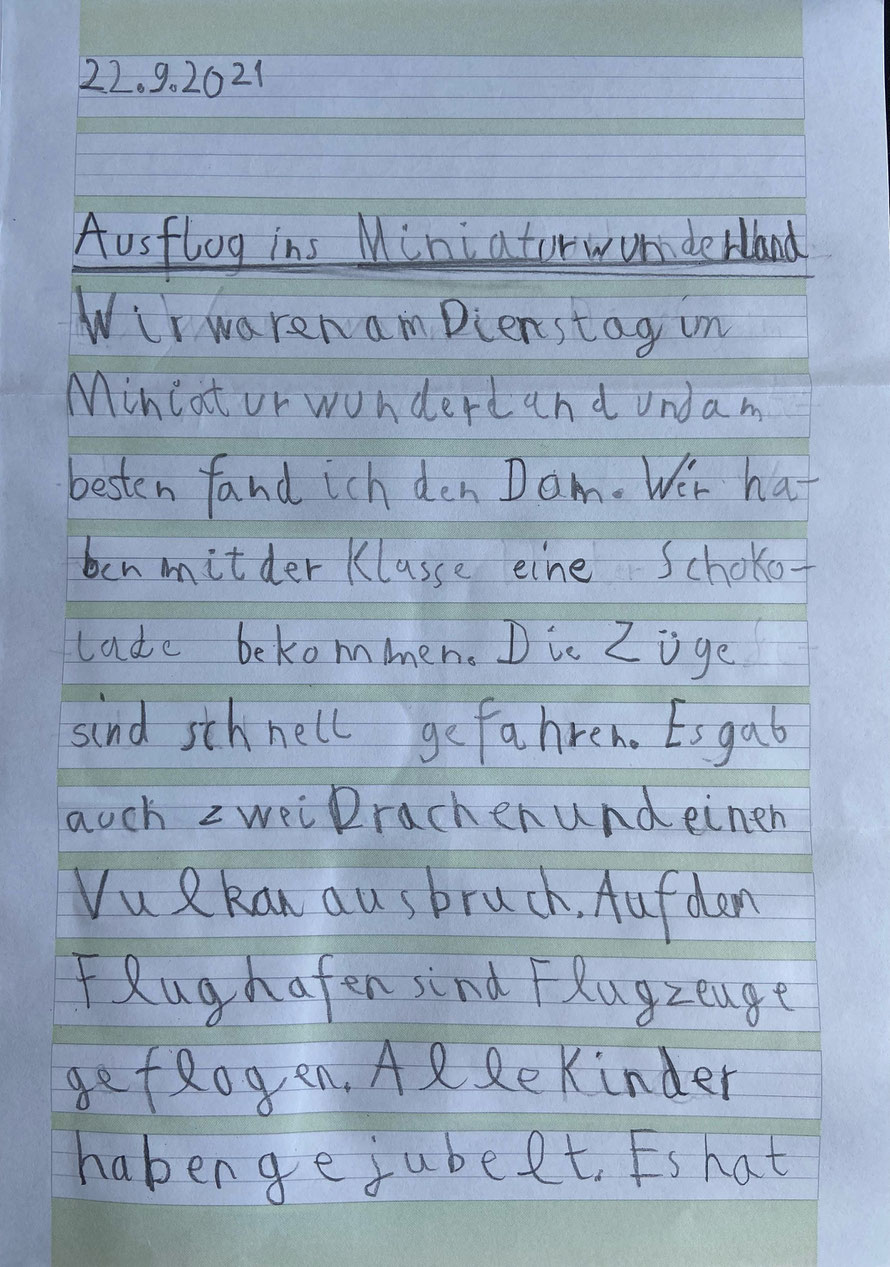 22.9.2021
Ausflug ins Miniaturwunderland
Wir waren am Dienstag im
Miniaturwunderland und am
besten fand ich den Dom. Wir ha-
ben mit der Klasse eine Schoko-
lade bekommen. Die Züge
sind schnell gefahren. Es gab
auch zwei Drachen und einen
Vulkanausbruch. Auf dem
Flughafen sind Flugzeuge
geflogen. Alle Kinder
haben gejubelt. Es hat